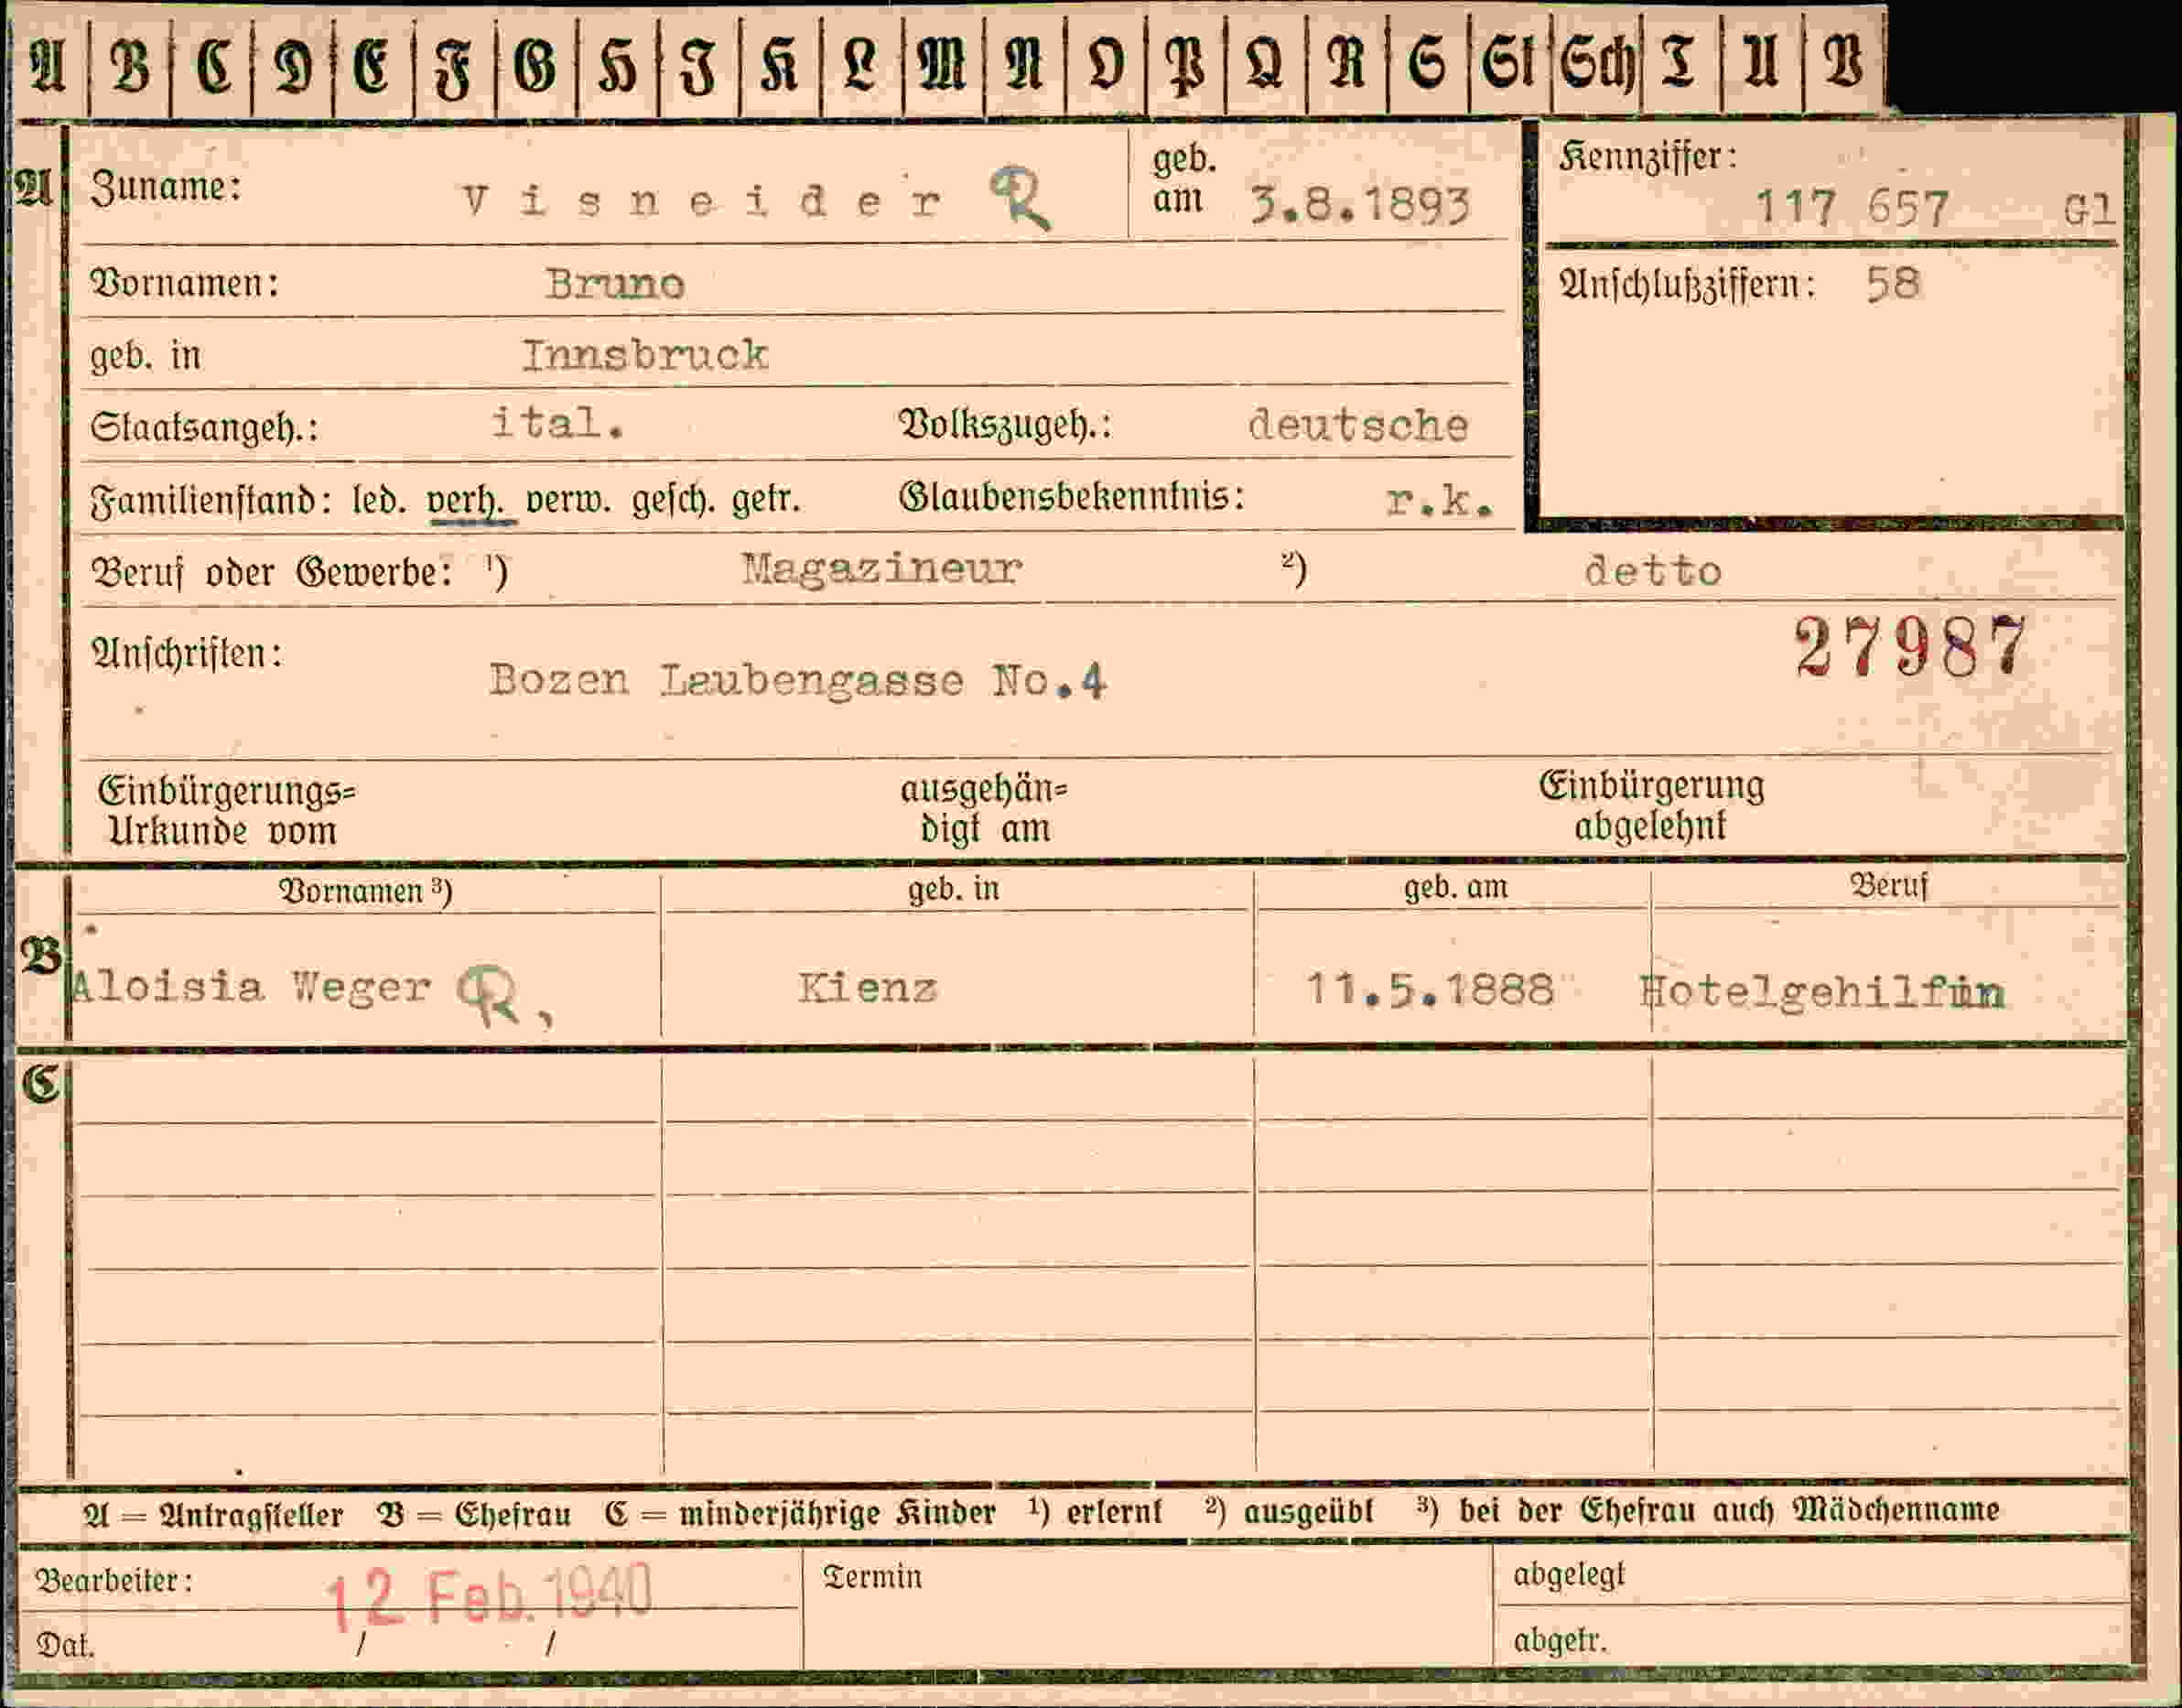 A B C D E F G H I K L M N O P Q R S St Sch T U V
A Zuname: Visneider R geb. am 3.8.1893 Kennziffer: 117 657 Gl
Vornamen: Bruno Anschlußziffern: 58
geb. in Innsbruck
Staatsangeh.: ital. Volkszugeh.: deutsche
Familienstand: led. verh. verw. gesch. getr. Glaubensbekenntnis: r.k.
Beruf oder Gewerbe: ¹) Magazineur ²) detto
Anschriften: 27987
Bozen Laubengasse No.4
Einbürgerungs= ausgehän= Einbürgerung
Urkunde vom digt am abgelehnt
Vornamen ³) geb. in geb. am Beruf
B Aloisia Weger R, Kienz 11.5.1888 Hotelgehilfin
C
A = Antragsteller B = Ehefrau C = minderjährige Kinder ¹) erlernt ²) ausgeübt ³) bei der Ehefrau auch Mädchenname
Bearbeiter: 12 Feb. 1940 Termin abgelegt
Dat. / / abgetr.